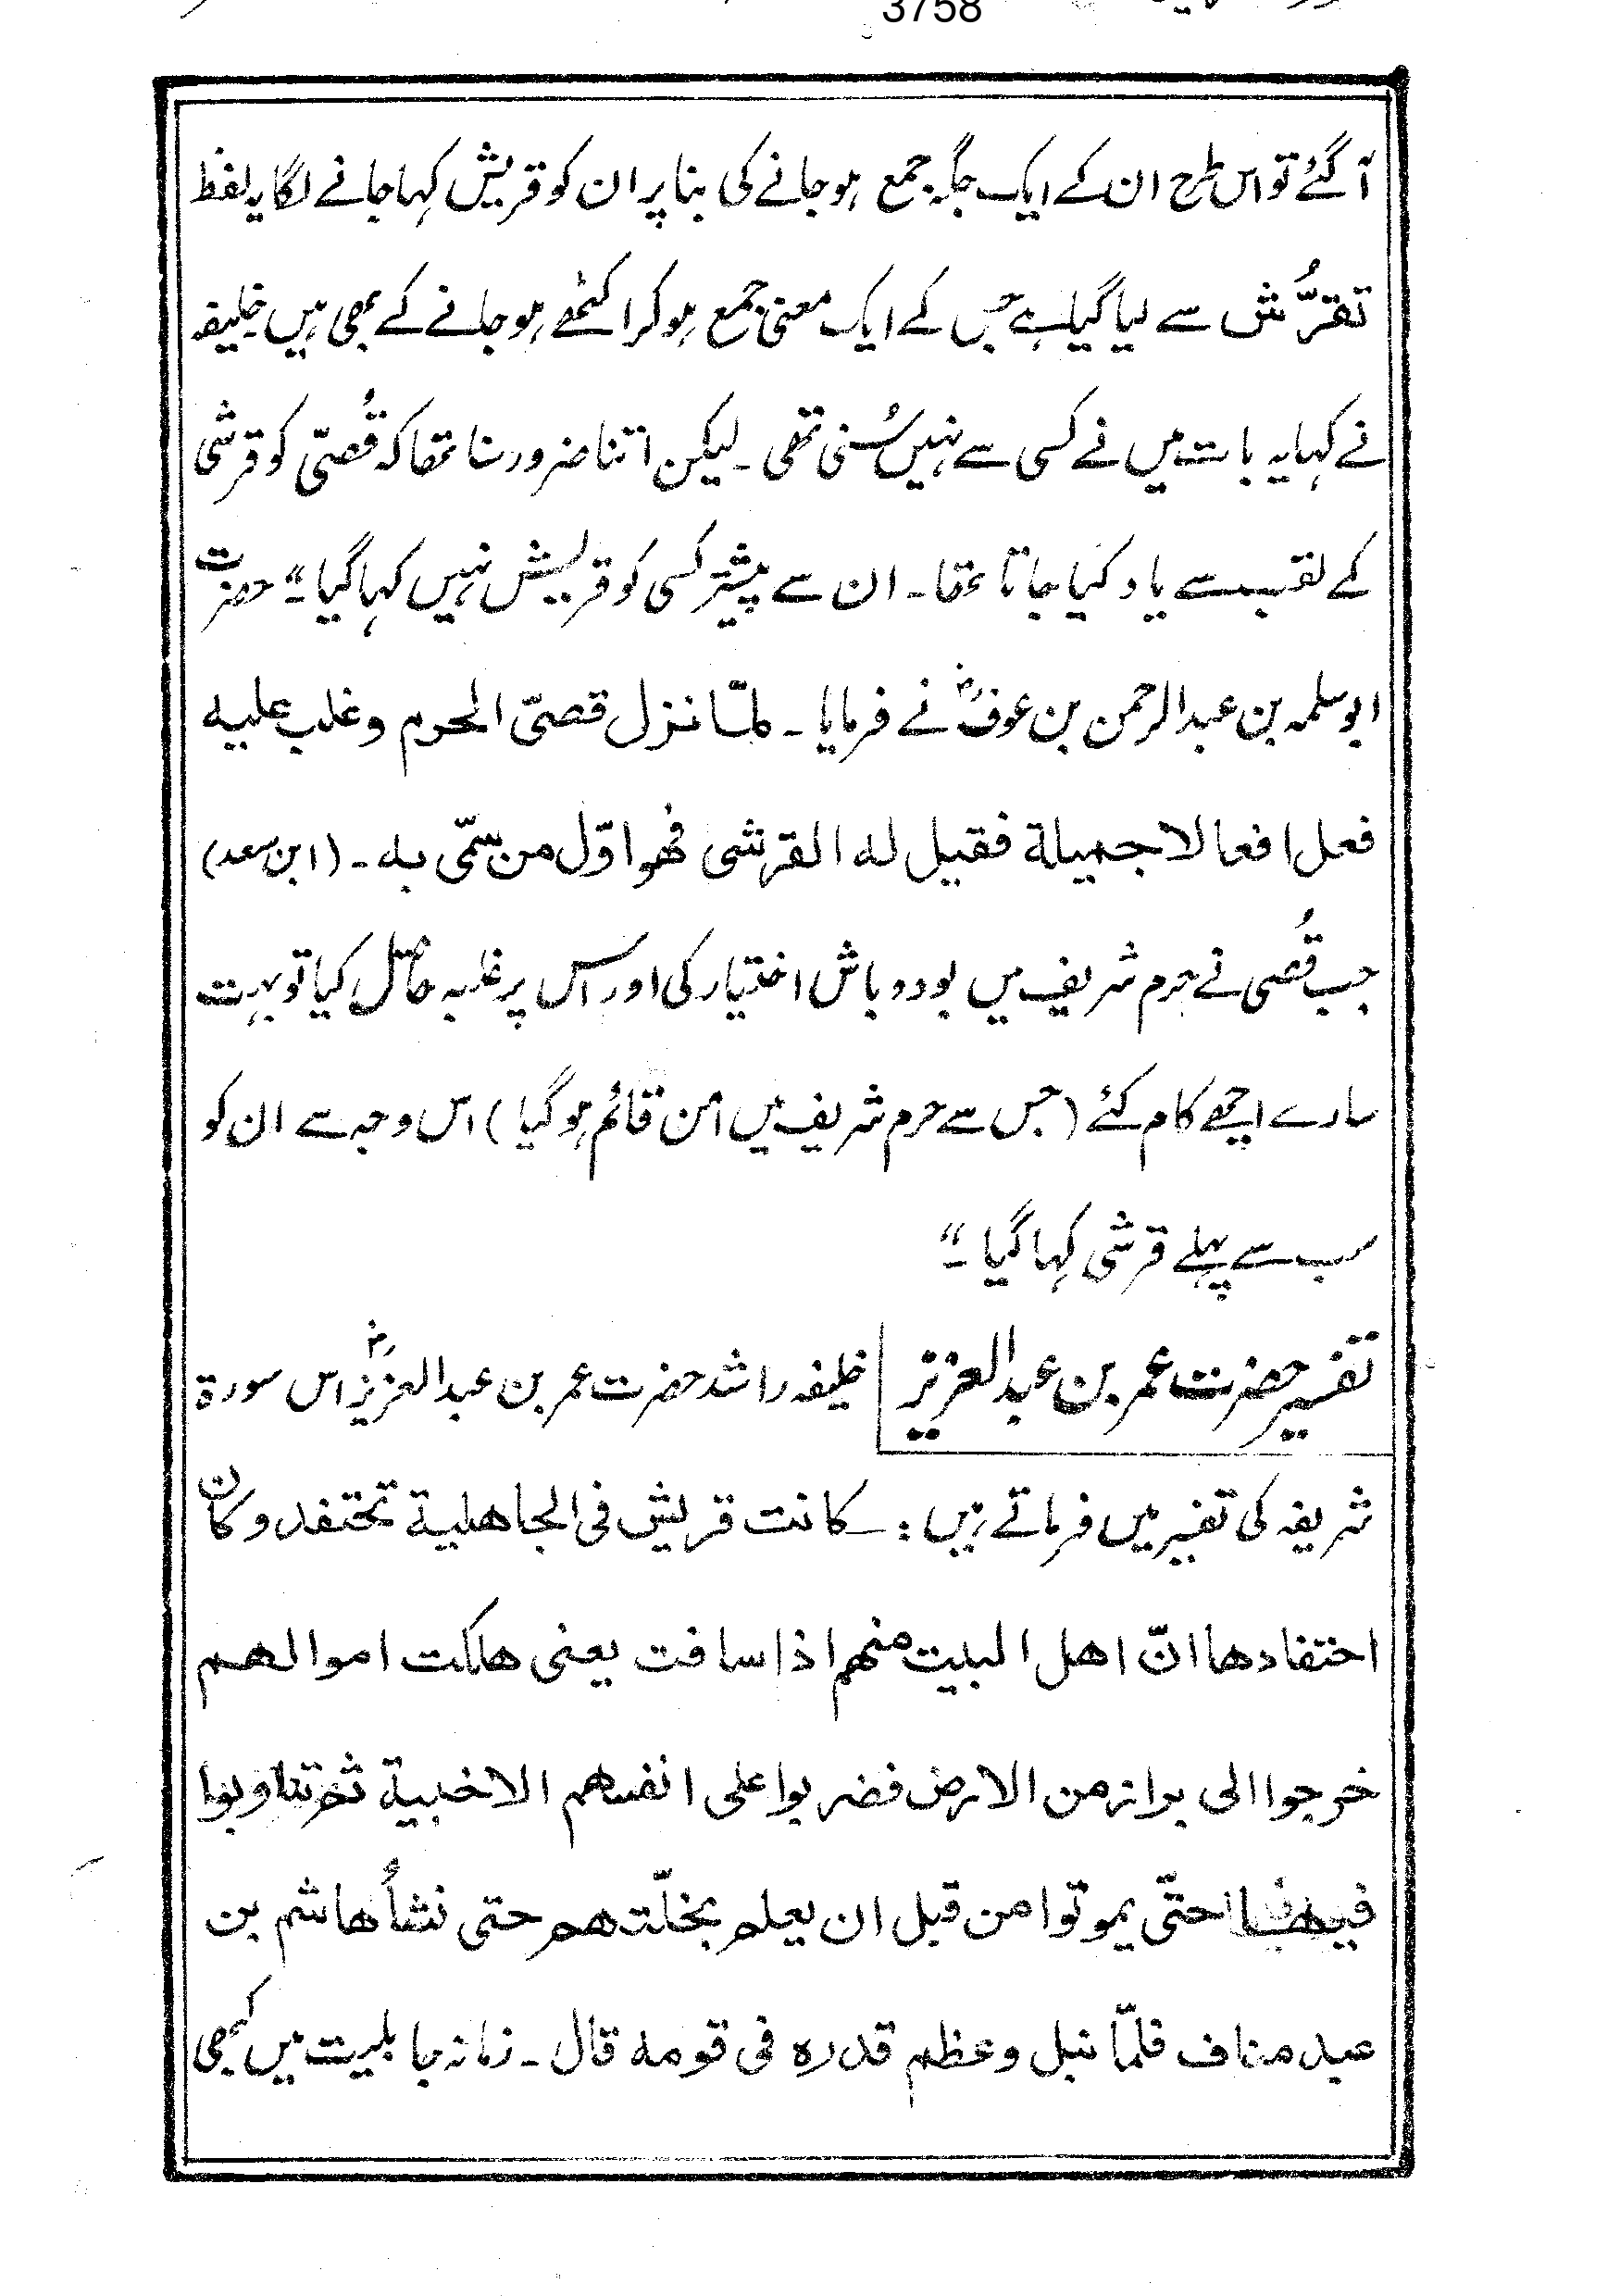 3758
آگئے تو اس طرح ان کے ایک جگہ جمع ہوجانے کی بنا پر ان کو قریش کہا جانے لگا یہ لفظ
تقرُّش سے لیا گیا ہے جس کے ایک معنی جمع ہوکر اکٹھے ہوجانے کے بھی ہیں خلیفہ
نے کہا یہ بات میں نے کسی سے نہیں سُنی تھی ۔ لیکن اتنا ضرور سنا تھا کہ قُصیّ کو قرشی
کے لقب سے یاد کیا جاتا تھا ۔ ان سے پیشتر کسی کو قریش نہیں کہا گیا ۔" حضرت
ابوسلمہ بن عبدالرحمن بن عوفؓ نے فرمایا ۔ لمّا نزل قصیّ الحرم وغلب علیه
فعل افعالا جمیلة فقیل له القرشی فهو اوّل من سمّی به ۔ (ابن سعد)
جب قُصی نے حرم شریف میں بودوباش اختیار کی اور اس پر غلبہ حاصل کیا تو بہت
سارے اچھے کام کئے (جس سے حرم شریف میں امن قائم ہوگیا) اس وجہ سے ان کو
سب سے پہلے قرشی کہا گیا ۔"
تفسیر حضرت عمر بن عبدالعزیز خلیفہ راشد حضرت عمر بن عبدالعزیزؓ اس سورة
شریفہ کی تفسیر میں فرماتے ہیں : کانت قریش فی الجاهلیة تحتفد وکان
احتفادها انّ اهل البیت منهم اذا سافت یعنی هلکت اموالهم
خرجوا الی براز من الارض فضربوا علی انفسهم الاخبیة ثم تناوبوا
فیها حتّی یموتوا من قبل ان یعلم بخلّتهم حتی نشأ هاشم بن
عبد مناف فلمّا نبل وعظم قدره فی قومه قال ۔ زمانہ جاہلیت میں کبھی